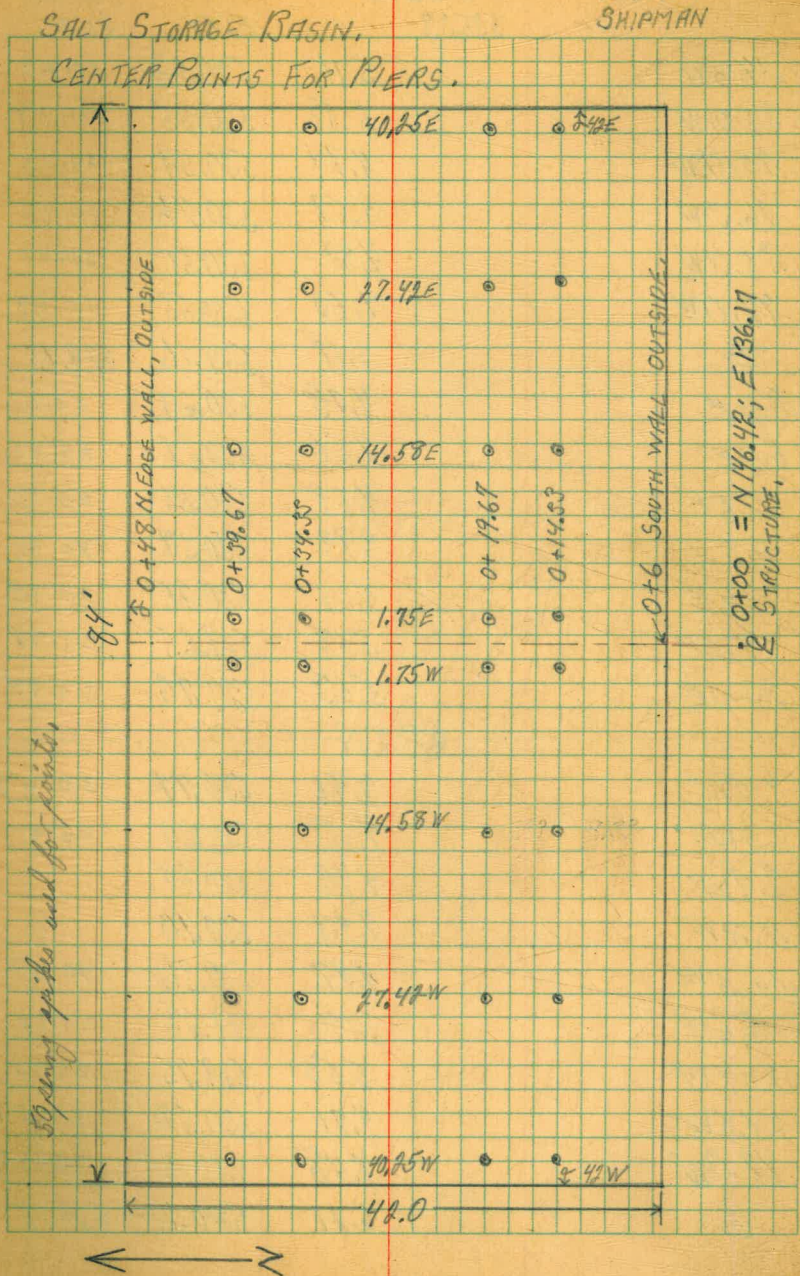 SALT STORAGE BASIN.
SHIPMAN
CENTER POINTS FOR PIERS.
40.25E
42E
27.42E
14.58E
1.75E
1.75W
14.58W
27.42W
40.25W
42W
0+48 N. EDGE WALL, OUTSIDE
0+39.67
0+34.33
0+19.67
0+14.33
0+6 SOUTH WALL OUTSIDE.
0+00 = N146.42; E136.17
STRUCTURE.
84'
50 penny spikes used for points.
42.0
N